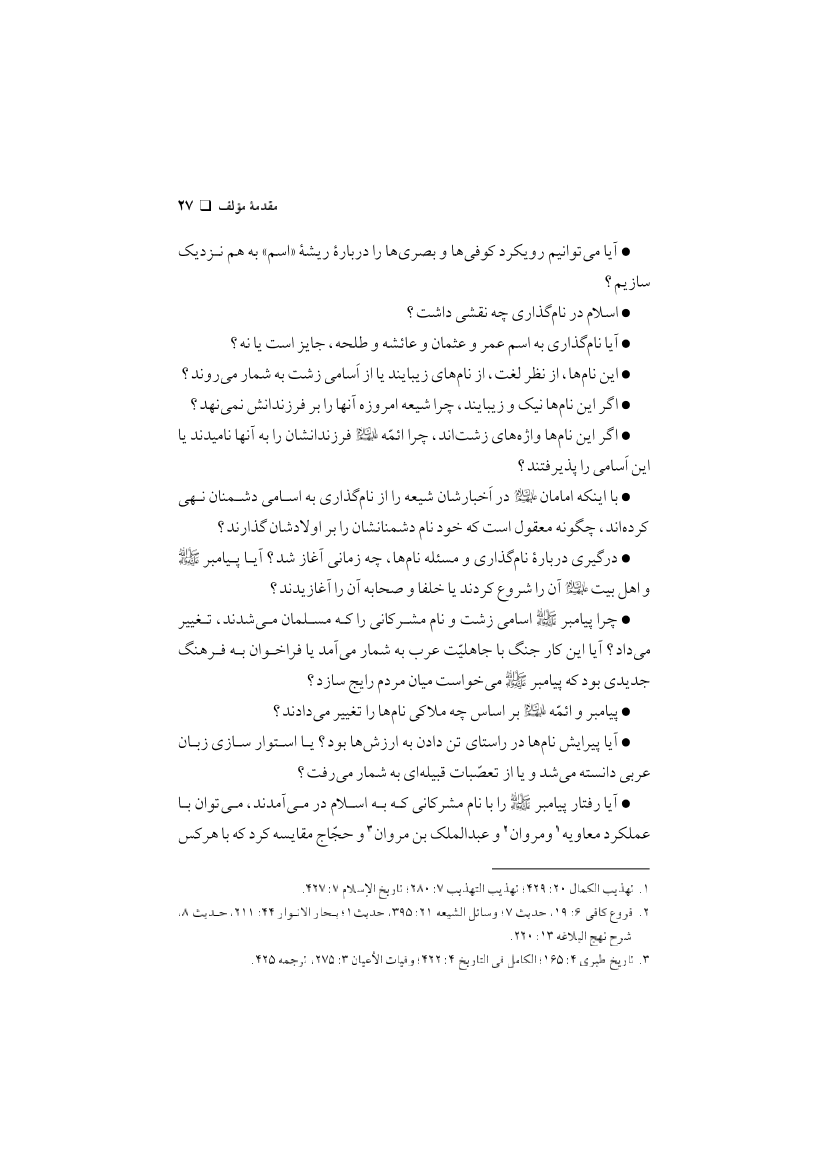 مقدمهٔ مؤلف ❏ ۲۷
● آیا می‌توانیم رویکرد کوفی‌ها و بصری‌ها را دربارهٔ ریشهٔ «اسم» به هم نـزدیک
سازیم؟
● اسلام در نام‌گذاری چه نقشی داشت؟
● آیا نام‌گذاری به اسم عمر و عثمان و عائشه و طلحه، جایز است یا نه؟
● این نام‌ها، از نظر لغت، از نام‌های زیبایند یا از اَسامی زشت به شمار می‌روند؟
● اگر این نام‌ها نیک و زیبایند، چرا شیعه امروزه آنها را بر فرزندانش نمی‌نهد؟
● اگر این نام‌ها واژه‌های زشت‌اند، چرا ائمّه علیهم‌السلام فرزندانشان را به آنها نامیدند یا
این اَسامی را پذیرفتند؟
● با اینکه امامان علیهم‌السلام در اَخبارشان شیعه را از نام‌گذاری به اسـامی دشـمنان نـهی
کرده‌اند، چگونه معقول است که خود نام دشمنانشان را بر اولادشان گذارند؟
● درگیری دربارهٔ نام‌گذاری و مسئله نام‌ها، چه زمانی آغاز شد؟ آیـا پـیامبر ﷺ
و اهل بیت علیهم‌السلام آن را شروع کردند یا خلفا و صحابه آن را آغازیدند؟
● چرا پیامبر ﷺ اسامی زشت و نام مشـرکانی را کـه مسـلمان مـی‌شدند، تـغییر
می‌داد؟ آیا این کار جنگ با جاهلیّت عرب به شمار می‌آمد یا فراخـوان بـه فـرهنگ
جدیدی بود که پیامبر ﷺ می‌خواست میان مردم رایج سازد؟
● پیامبر و ائمّه علیهم‌السلام بر اساس چه ملاکی نام‌ها را تغییر می‌دادند؟
● آیا پیرایش نام‌ها در راستای تن دادن به ارزش‌ها بود؟ یـا اسـتوار سـازی زبـان
عربی دانسته می‌شد و یا از تعصّبات قبیله‌ای به شمار می‌رفت؟
● آیا رفتار پیامبر ﷺ را با نام مشرکانی کـه بـه اسـلام در مـی‌آمدند، مـی‌توان بـا
عملکرد معاویه۱ ومروان۲ و عبدالملک بن مروان۳ و حجّاج مقایسه کرد که با هرکس
۱. تهذیب الکمال ۲۰: ۴۲۹؛ تهذیب التهذیب ۷: ۲۸۰؛ تاریخ الإسلام ۷: ۴۲۷.
۲. فروع کافی ۶: ۱۹، حدیث ۷؛ وسائل الشیعه ۲۱: ۳۹۵، حدیث ۱؛ بـحار الانـوار ۴۴: ۲۱۱، حـدیث ۸،
شرح نهج البلاغه ۱۳: ۲۲۰.
۳. تاریخ طبری ۴: ۱۶۵؛ الکامل فی التاریخ ۴: ۴۲۲؛ وفیات الأعیان ۳: ۲۷۵، ترجمه ۴۲۵.